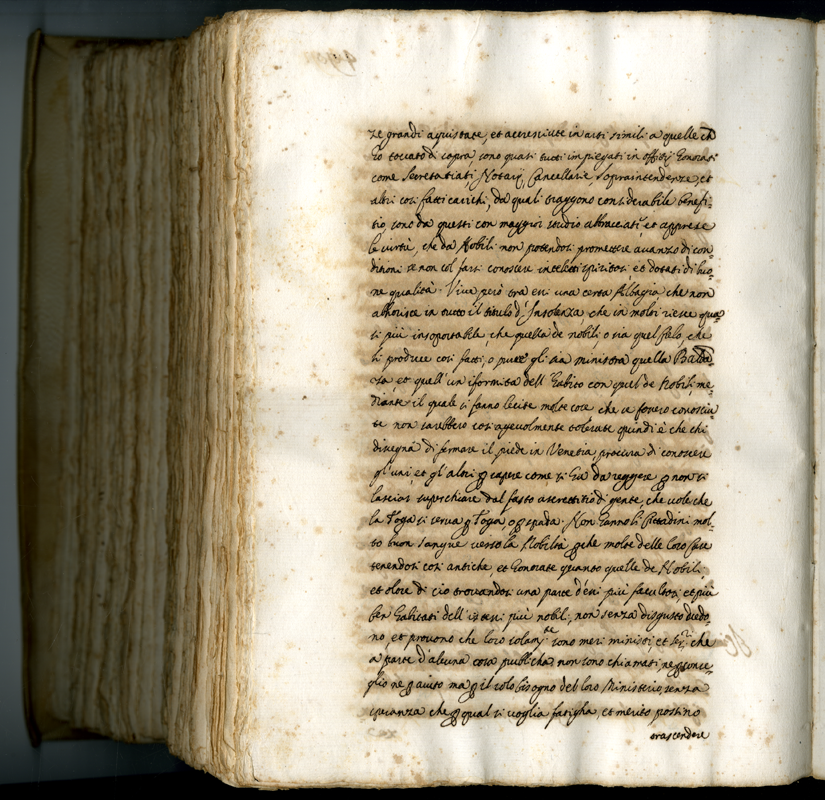 ze grandi aquistate, et accresciute in arti simili a quelle ch
ho toccato di sopra sono quasi tutti impiegati in offitij honorati
come Secretariati, Notarij, Cancellarie, sopraintendenze, et
altri cosi fatti carichi, da quali traggono considerabile benefi-
tio, sono da questi con maggior studio abbracciati, et apprese
le virtù, che da Nobili non potendosi promettere avanzo di con-
ditioni se non col farsi conoscere intelletti spiritosi, et dotati di buo-
ne qualità. Vive però tra essi una certa Albagia che non
abhorisce in tutto il titulo d'Insolenza, che in molti riesce qua-
si più insoportabile, che quella de nobili, o sia quel Cielo, che
li produce cosi fatti, o pure gli sia ministra quella
za, et quell'uniformità dell'habito con quel de Nobili, me-
diante il quale si fanno lecite molte cose che se fossero conosciu-
te non sarebbero cosi agevolmente tolerate quindi è che chi
disegna di fermare il piede in Venetia procura di conoscere
gl'uni, et gl'altri p sapere come si ha da reggere p non si
lasciar superchiare dal fasto di gente, che vole che
la Toga si serva p Toga o p spada. Non hanno li Cittadini mol-
to buon sangue verso la Nobiltà pche molte delle loro Case
tenendosi cosi antiche, et honorate quanto quelle de Nobili
et oltre di cio trovandosi una parte d'essi più facultosi et più
ben habitati dell'istessi più nobili, non senza disgusto vedo-
no, et provono che loro solamte sono meri ministri, et seri, che
a parte d'alcuna cosa publicha non sono chiamati ne p conse-
glio ne p aiuto ma p il solo bisogno del loro Ministerio, senza
speranza che p qual si voglia fatigha, et merito possino
trascendere